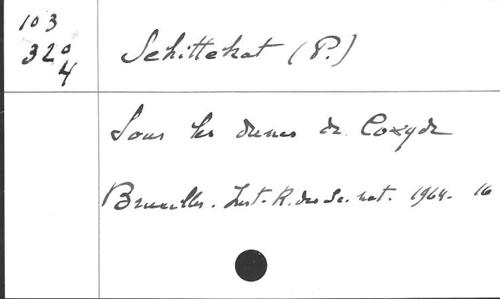 103
320
4
Schittekat (P.)
Sous les dunes de Coxyde
Bruxelles. Inst. R. des Sc. nat. 1964. 16